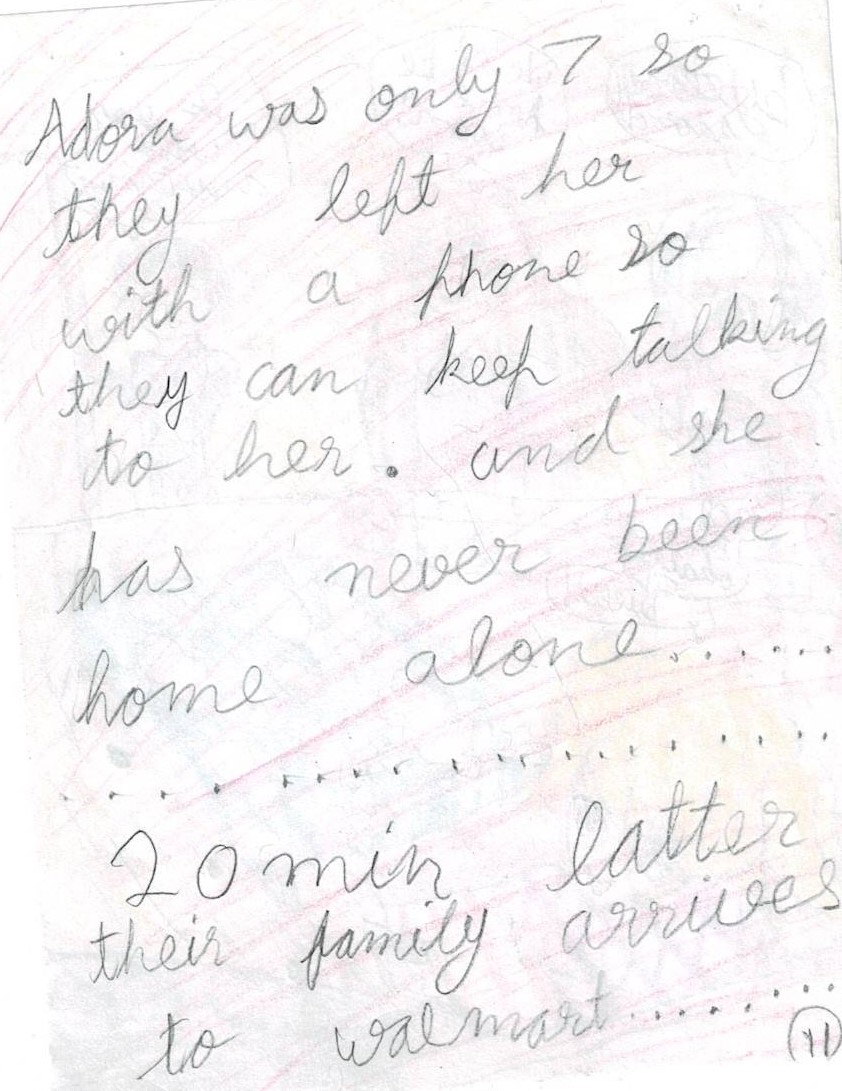 Adora was only 7 so
they left her
with a phone so
they can keep talking
to her. and she
has never been
home alone.......
.................
20 min latter
their family arrives
to walmart........
11